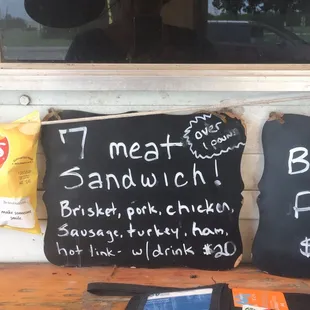 7 meat
over
1 pound
Sandwich!
Brisket, pork, chicken,
Sausage, turkey, ham,
hot link - w/drink $20
B
$